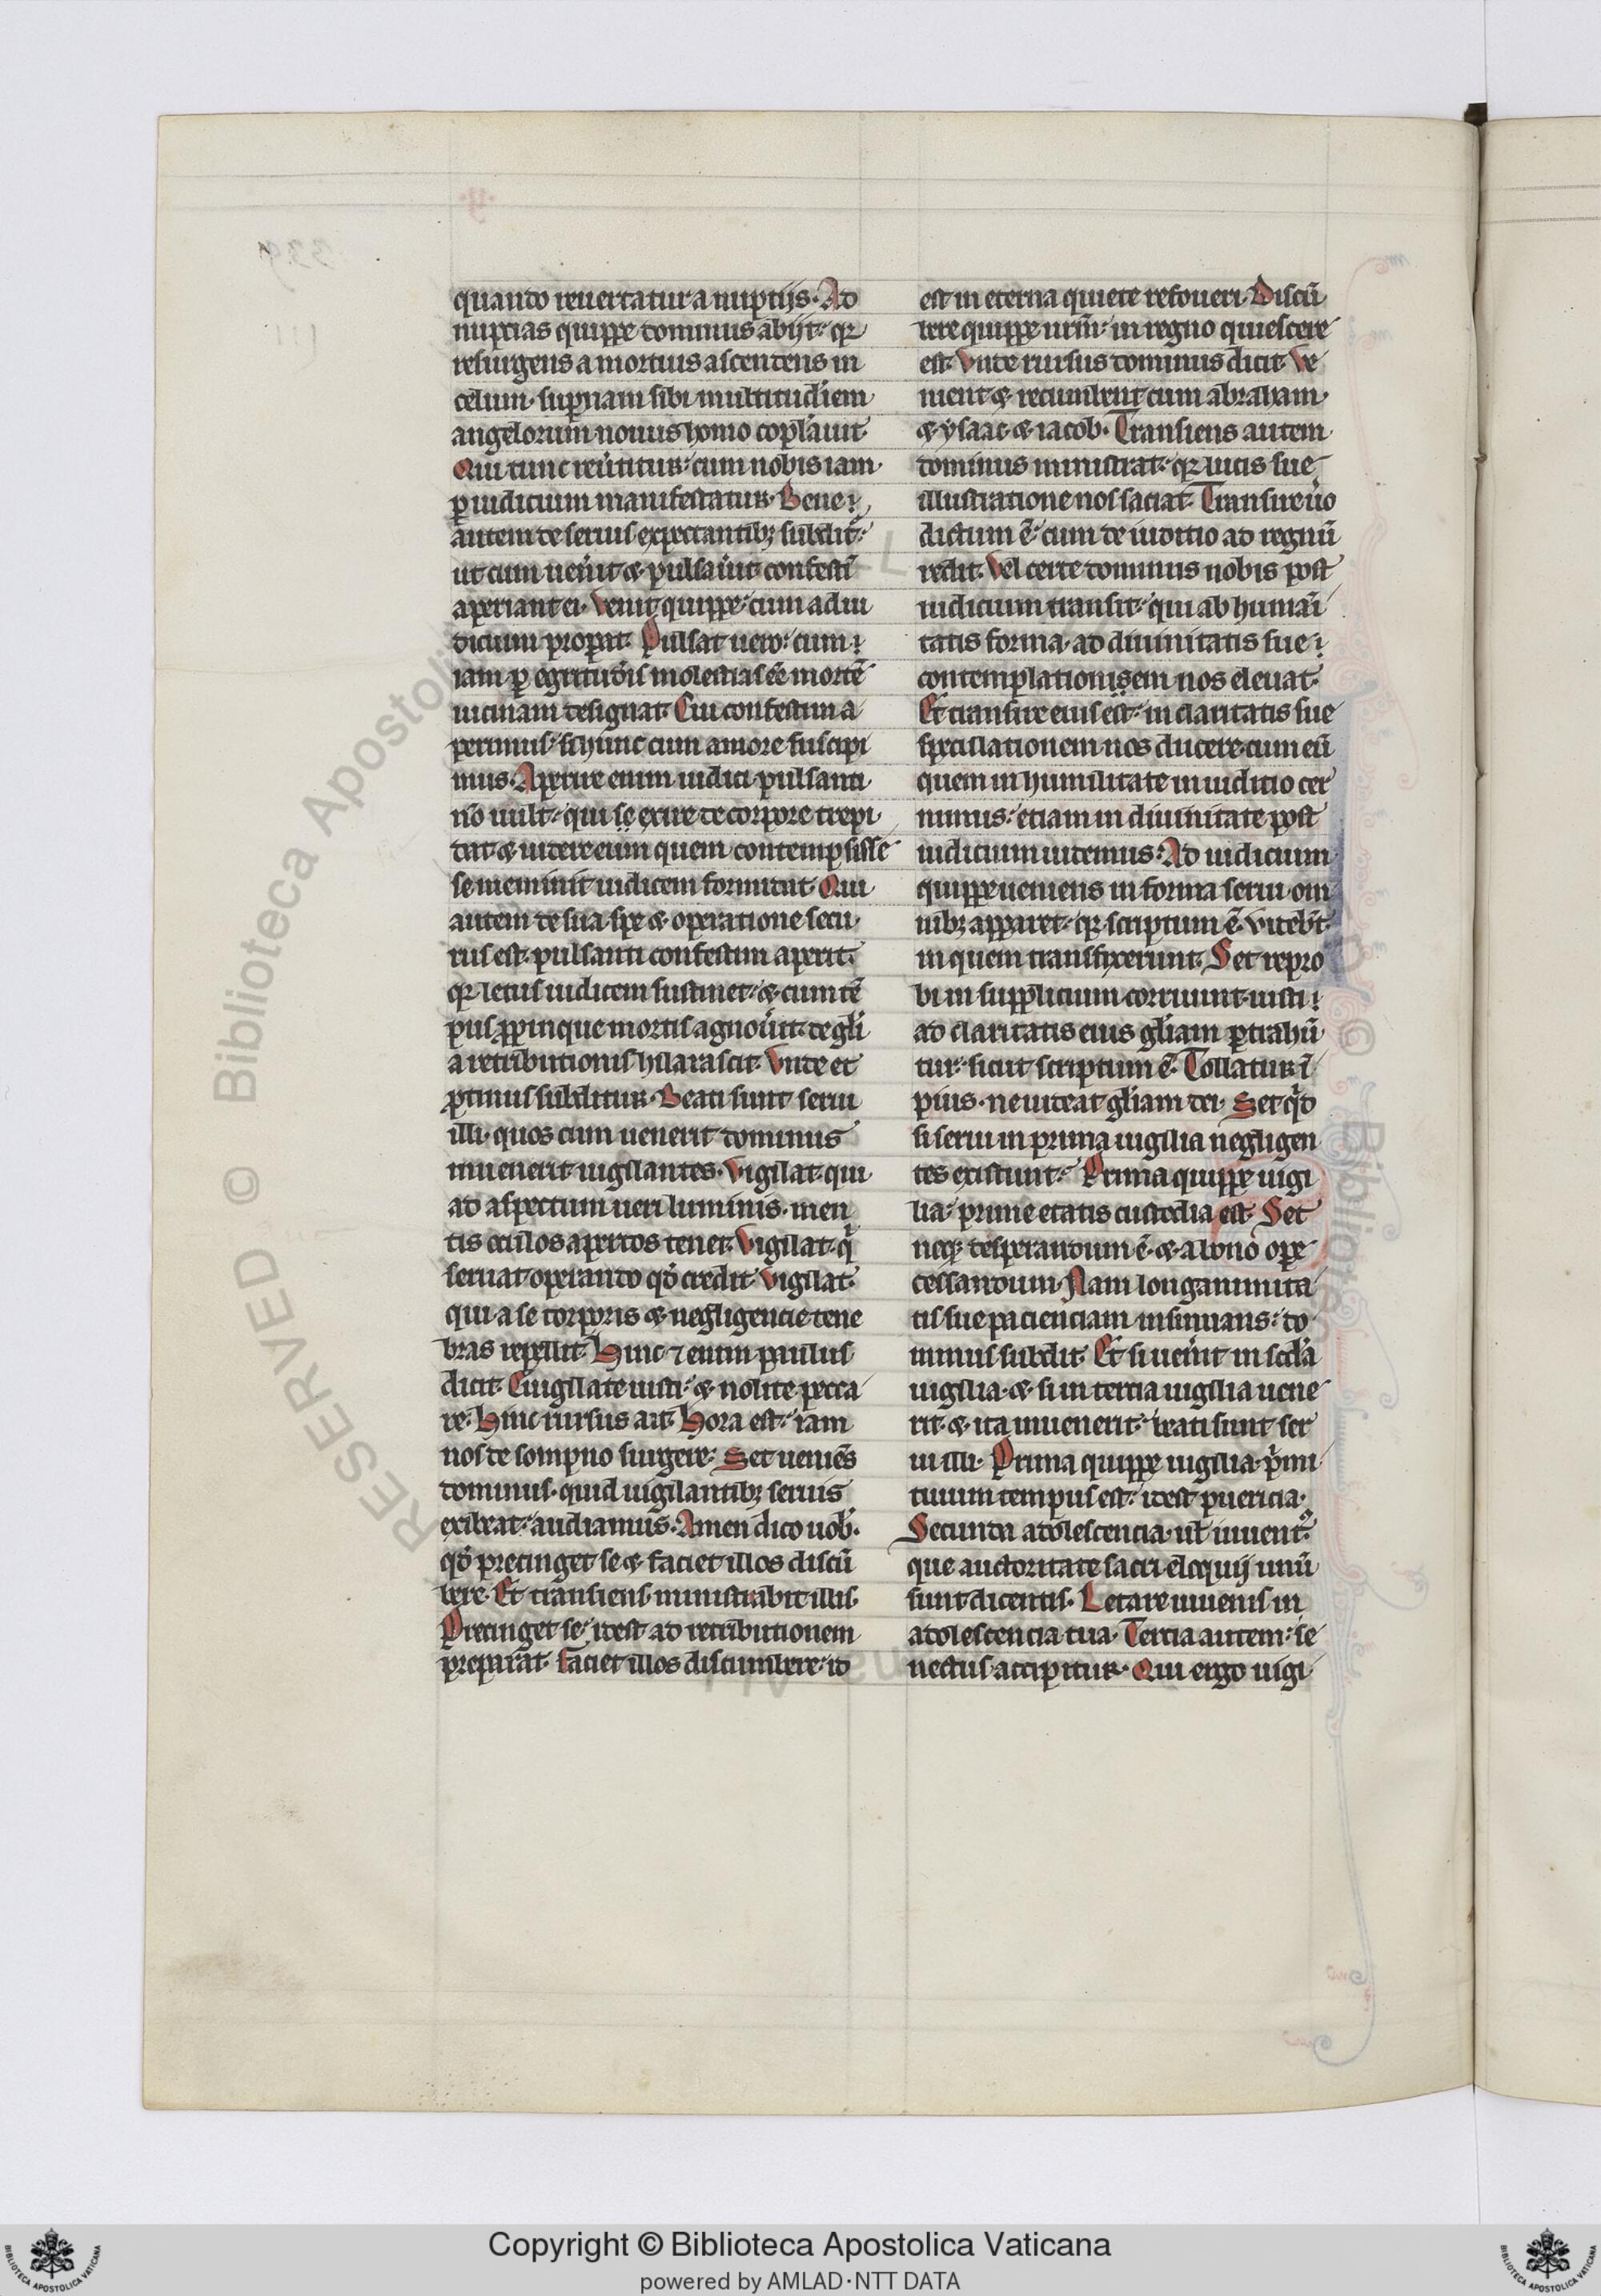 quando reuertatur a nuptijs. Ad
nuptias quippe dominus abijt. qꝛ
resurgens a mortuis ascendens in
celum. sup̄nam sibi multitudiem
angelorum nouus homo cop̄lauit.
Qui tunc reu̓titur. cum nobis iam
ꝑ iudicium manifestatur. Bene
autem de seruis expectantibꝫ subdit̃.
ut cum uen̓it ⁊ pulsau̓it confestĩ
aperiant ei. Venit quippe. cum ad iu
dicium properat. Pulsat uero. cum
iam ꝑ egritudīs molestias eē mortē
uicinam designat. Cui confestim a
perimus. si hunc cum amore suscipi
mus. Aperire enim iudici pulsanti
nō uult. qui se exire de corpore trepi
dat. ⁊ uidere eum quem contempsisse
se meminit iudicem formidat. Qui
autem de sua spe ⁊ operatione secu
rus est. pulsanti confestim aperit.
qꝛ letus iudicem sustinet. ⁊ cum tē
pus ꝓpinque mortis agnou̓it. de gl̄i
a retributionis hilarascit. Vnde et
ꝓtinus subditur. Beati sunt serui
illi. quos cum uenerit dominus
inuenerit uigilantes. Vigilat. qui
ad aspectum ueri luminis. men
tis oculos apertos tenet. Vigilat. q̇
seruat operando qd̓ credit. Vigilat.
qui a se torporis ⁊ negligencie tene
bras repellit. Hinc ⁊enim paulus
dicit. Euigilate iusti. ⁊ nolite pecca
re. Hinc rursus ait. Hora est. iam
nos de sompno surgere. Set ueniēs
dominus. quid uigilantibꝫ seruis
exibeat. audiamus. Amen dico uob̓.
qd̓ precinget se ⁊ faciet illos discū
bere. Et transiens ministrabit illis.
Precinget se. idest ad retributionem
preparat. Faciet illos discumbere. id
est in eterna quiete refoueri. Discū
bere quippe nr̄m. in regno quiescere
est. Vnde rursus dominus dicit. Ve
nient ⁊ recumbent cum abraham.
⁊ ysaac ⁊ iacob. Transiens autem
dominus ministrat. qꝛ lucis sue
illustratione nos saciat. Transire u̓o
dictum ē. cum de iudicio ad regnū
redit. Vel certe dominus nobis post
iudicium transit. qui ab humāi
tatis forma. ad diuinitatis sue
contemplationisem nos eleuat.
Et transire eius est. in claritatis sue
speculationem nos ducere. cum eū
quem in humilitate in iudicio cer
nimus. etiam in diuinitate post
iudicium uidemus. Ad iudicium
quippe ueniens in forma serui om
nibꝫ apparet. qꝛ scriptum ē. Videb̄t
in quem transfixerunt. Set repro
bi in supplicium corruunt. iusti
ad claritatis eius gl̄iam ꝑtrahū
tur. sicut scriptum ē. Tollatur ī
pius. ne uideat gl̄iam dei. Set qd̓
si serui in prima uigilia negligen
tes existunt. Prima quippe uigi
lia. prime etatis custodia est. Set
neqꝫ desperandum ē. ⁊ a bono ope
cessandum. Nam longanimita
tis sue pacienciam insinuans. do
minus subdit. Et si uen̓it in scd̄a
uigilia. ⁊ si in tercia uigilia uene
rit. ⁊ ita inuenerit. beati sunt ser
ui illi. Prima quippe uigilia. p̓mi
tiuum tempus est. idest puericia.
Secunda adolescencia. ul̄ iuuent̓.
que auctoritate sacri eloquij unū
sunt dicentis. Letare iuuenis in
adolescencia tua. Tercia autem. se
nectus accipitur. Qui ergo uigi
Copyright © Biblioteca Apostolica Vaticana
powered by AMLAD·NTT DATA